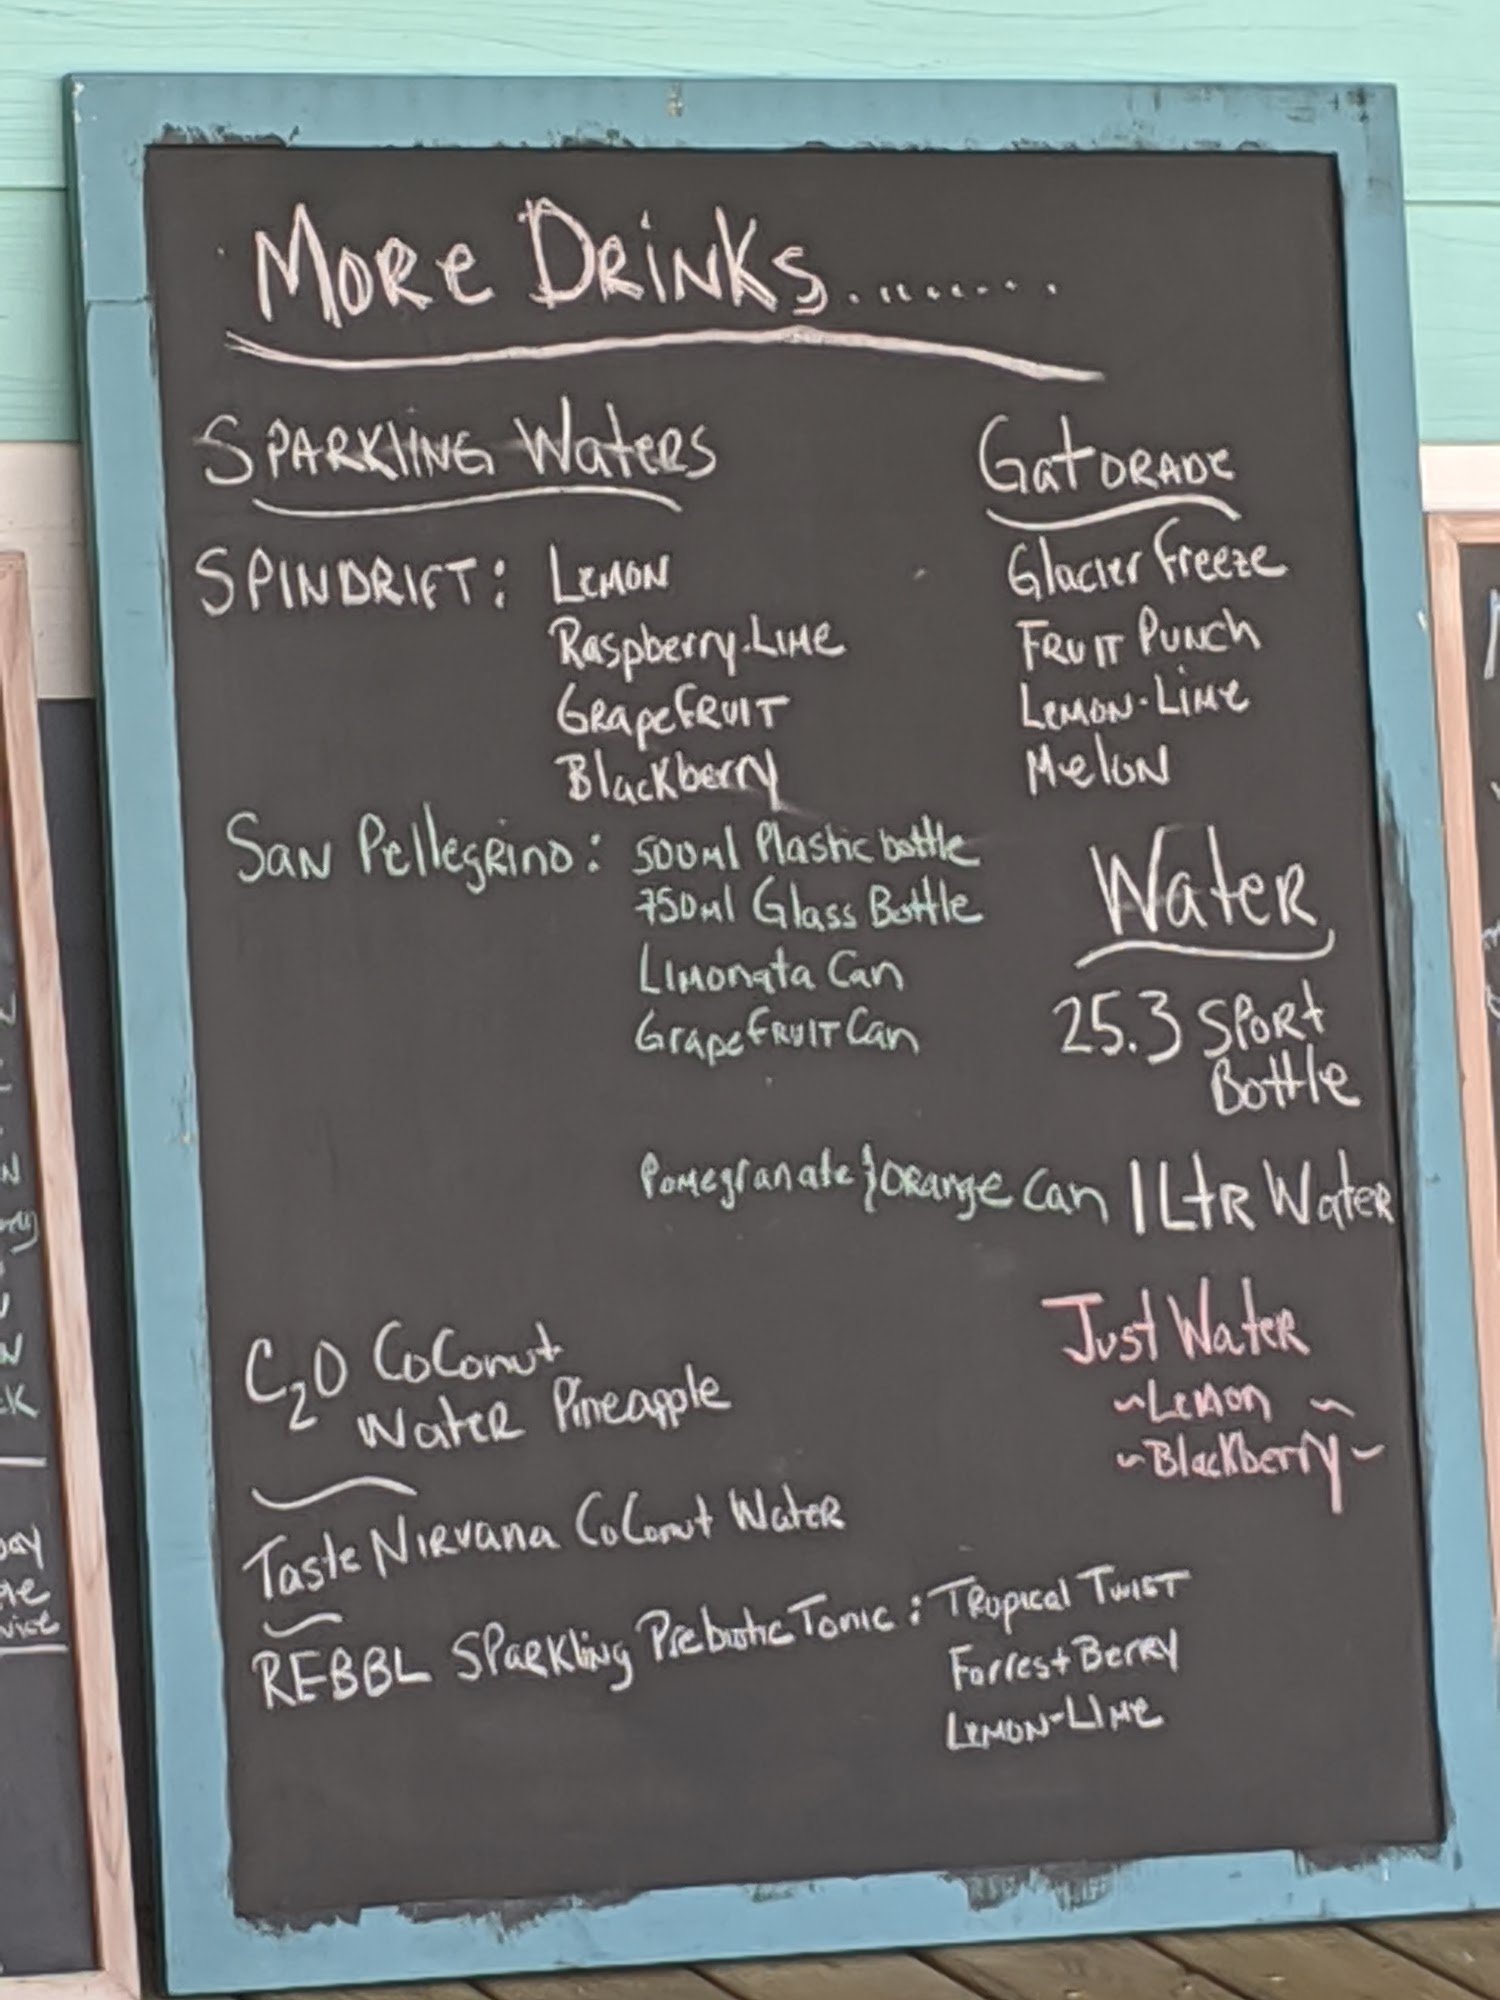 More Drinks.........
Sparkling Waters
Spindrift: Lemon
Raspberry-Lime
Grapefruit
Blackberry
San Pellegrino: 500ml Plastic bottle
750ml Glass Bottle
Limonata Can
Grapefruit Can
Pomegranate & Orange Can
Gatorade
Glacier Freeze
Fruit Punch
Lemon-Lime
Melon
Water
25.3 Sport
Bottle
1 Ltr Water
Just Water
~Lemon~
~Blackberry~
C2O Coconut
Water Pineapple
Taste Nirvana Coconut Water
REBBL Sparkling Prebiotic Tonic: Tropical Twist
Forrest Berry
Lemon-Lime